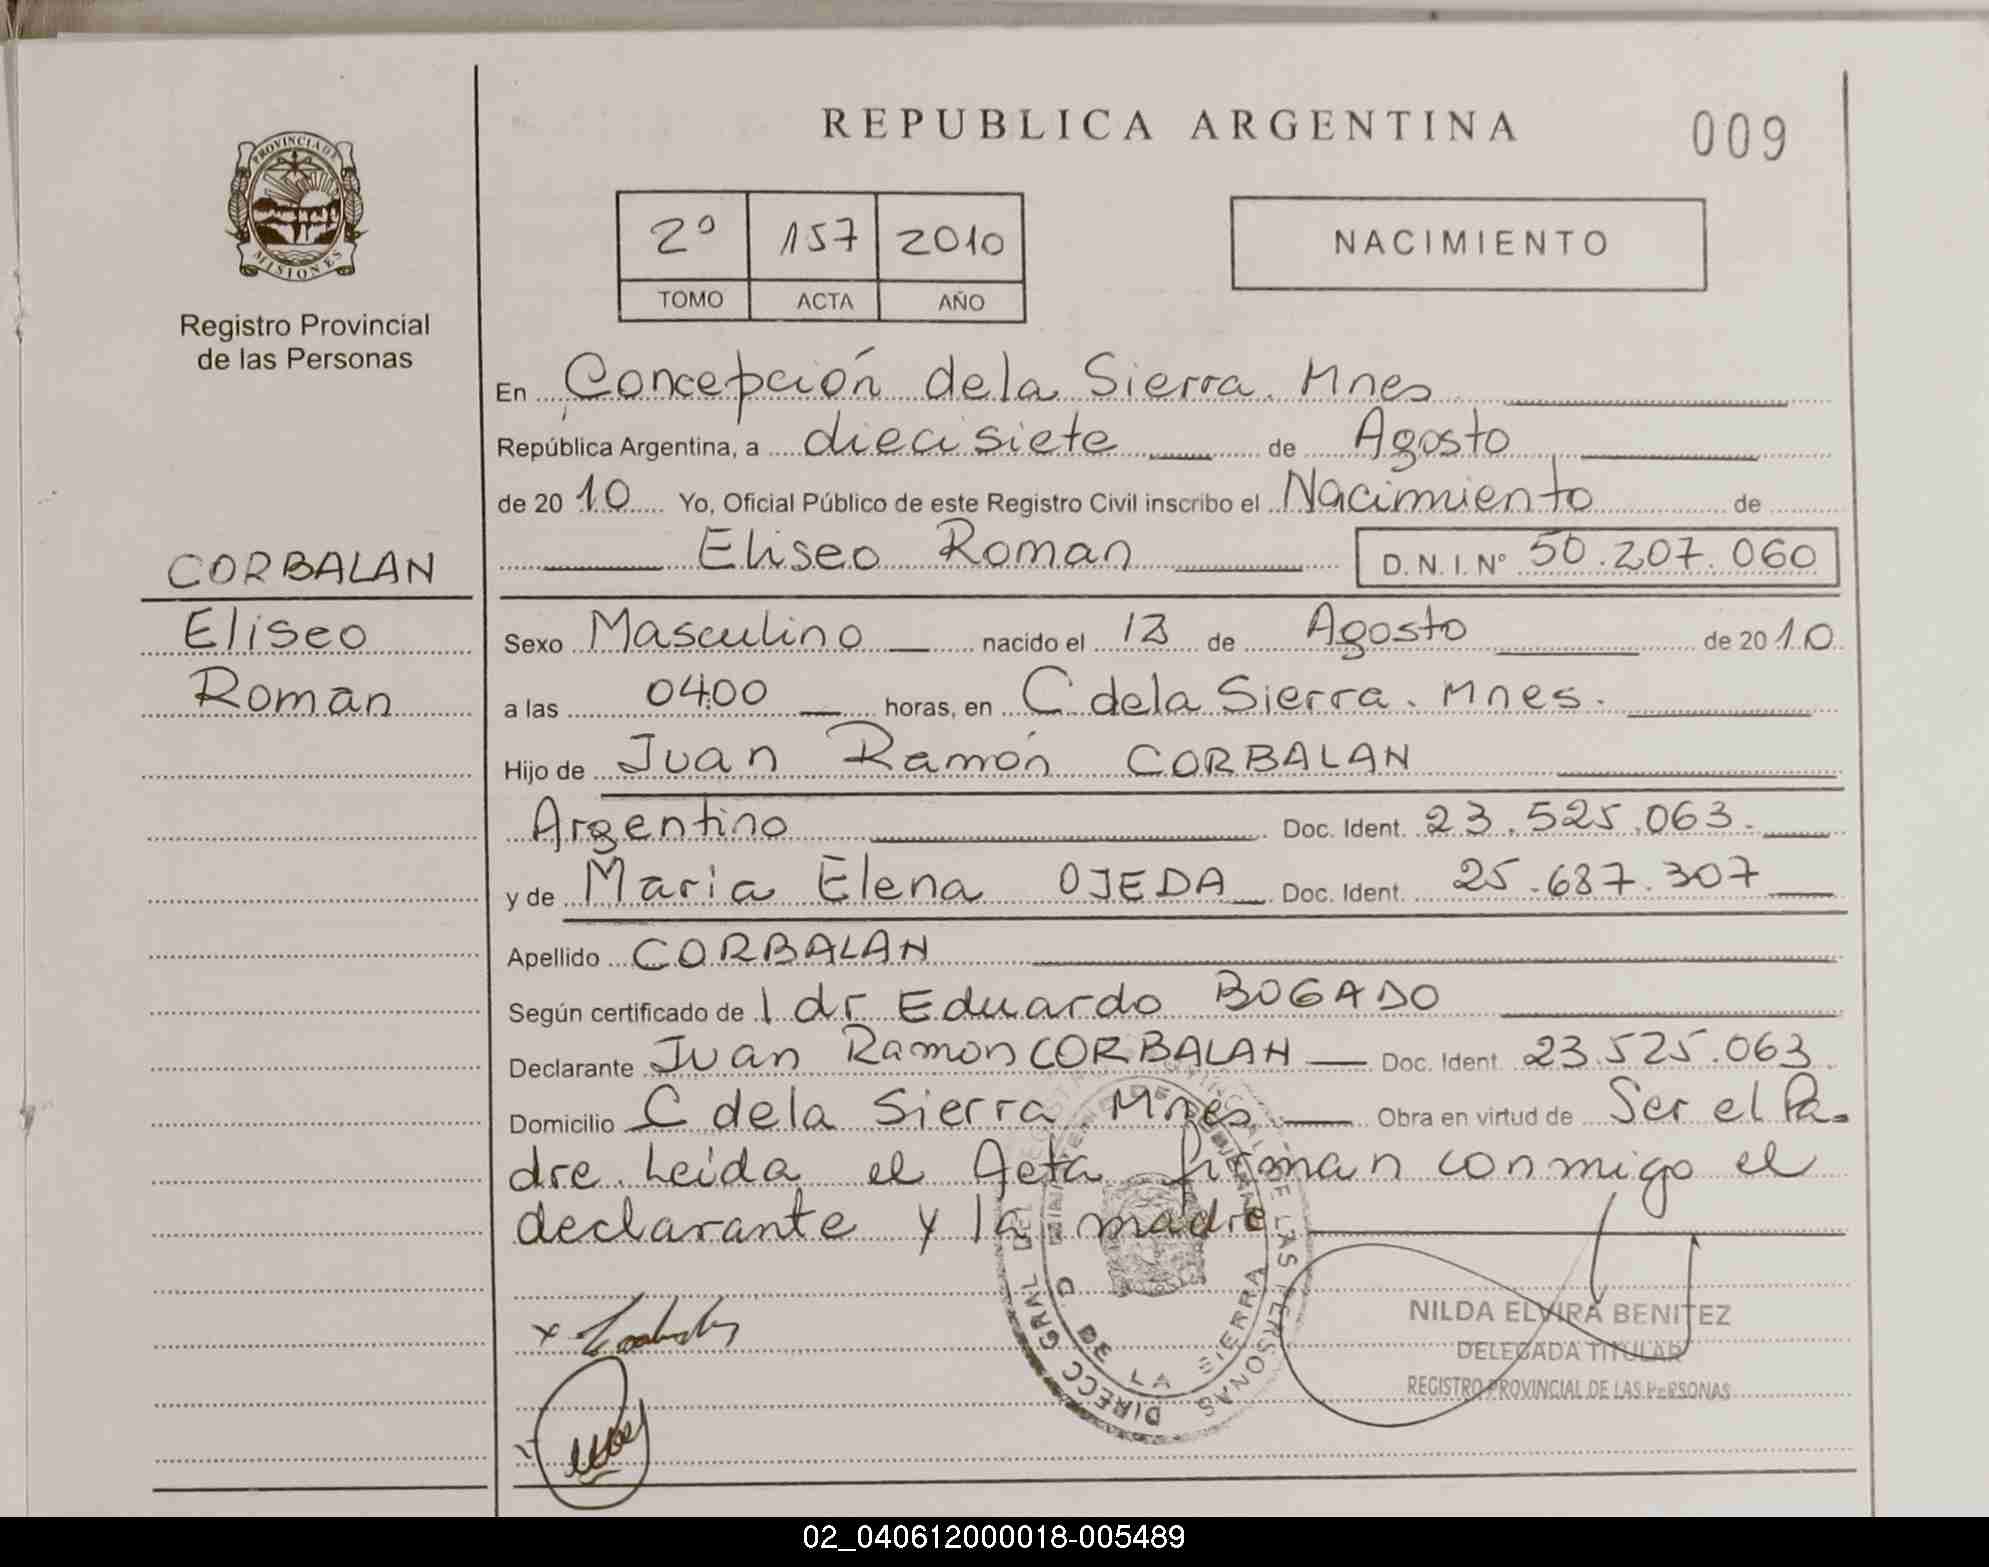 REPUBLICA ARGENTINA
009
PROVINCIA DE
MISIONES
Registro Provincial
de las Personas
2º 157 2010
TOMO ACTA AÑO
NACIMIENTO
En Concepción de la Sierra. Mnes
República Argentina, a diecisiete de Agosto
de 2010 Yo, Oficial Público de este Registro Civil inscribo el Nacimiento de
Eliseo Roman D. N. I. Nº 50.207.060
CORBALAN
Eliseo
Roman
Sexo Masculino nacido el 13 de Agosto de 2010
a las 04:00 horas, en C de la Sierra. Mnes.
Hijo de Juan Ramón CORBALAN
Argentino Doc. Ident. 23.525.063.
y de Maria Elena OJEDA Doc. Ident. 25.687.307
Apellido CORBALAN
Según certificado de l dr Eduardo BOGADO
Declarante Juan Ramon CORBALAN Doc. Ident. 23.525.063
Domicilio C de la Sierra Mnes Obra en virtud de Ser el Pa-
dre. Leida el Acta firman conmigo el
declarante y la madre
DIRECC GRAL DEL
DE LAS PERSONAS
DE LA SIERRA
NILDA ELVIRA BENITEZ
DELEGADA TITULAR
REGISTRO PROVINCIAL DE LAS PERSONAS
02_040612000018-005489